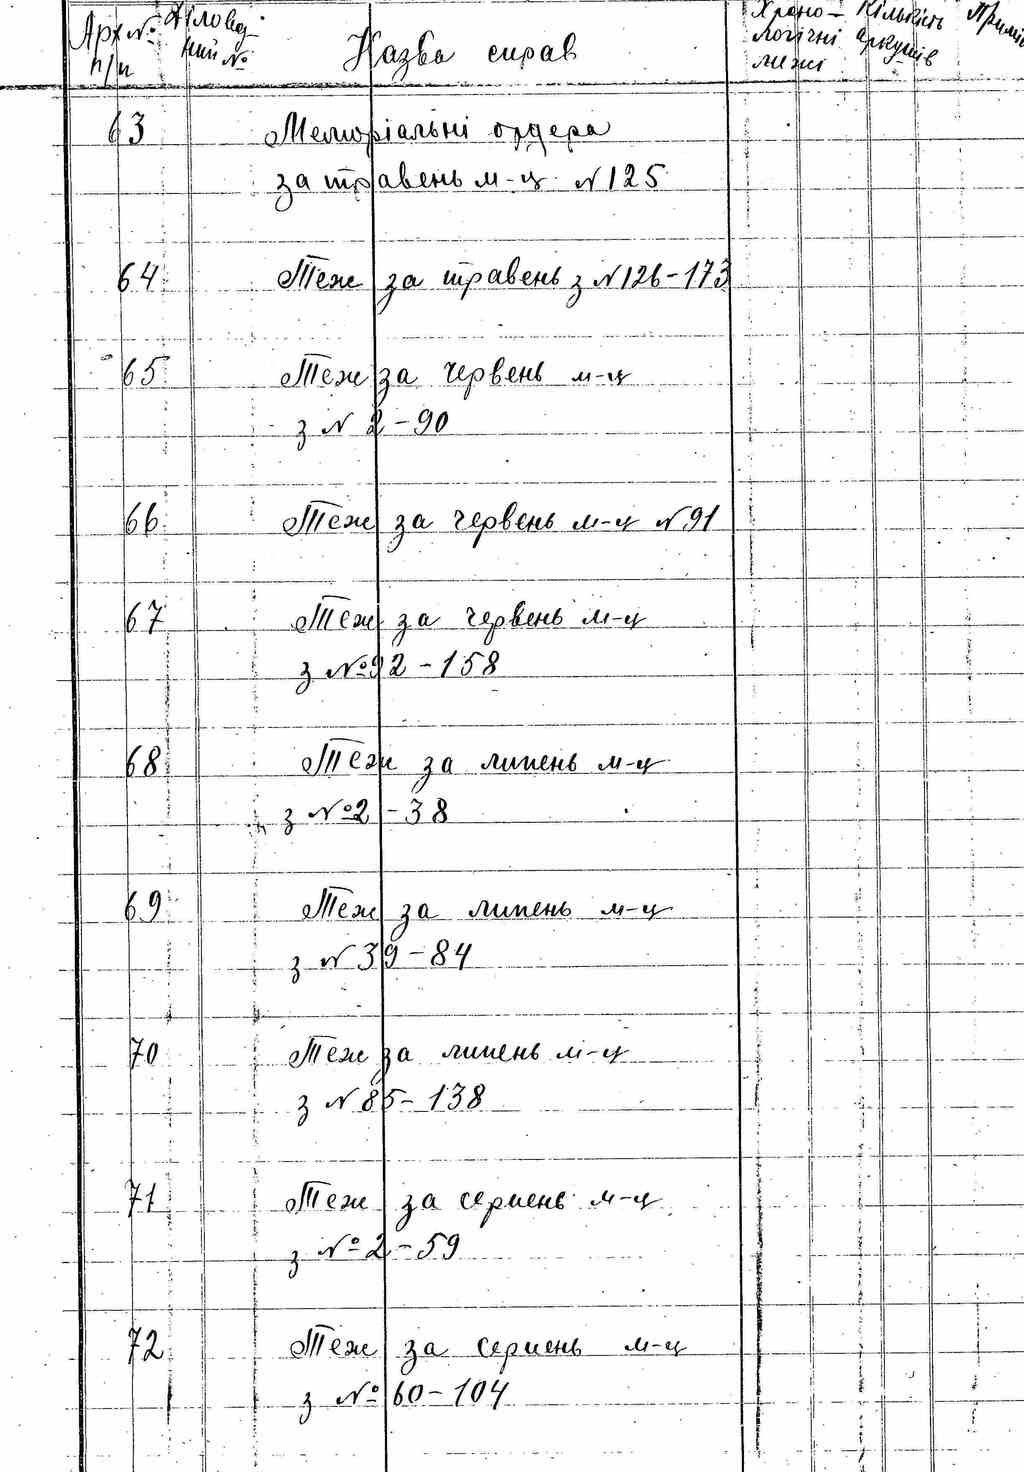 Арх №
п/п
Діловод
ний №
Назва справ
Хроно-
логічні
межі
Кількість
аркушів
Приміт
63 Меморіальні ордера
за травень м-ц N125
64 Теж за травень з N126-173
65 Теж за червень м-ц
з N 2-90
66 Теж за червень м-ц N91
67 Теж за червень м-ц
з №92-158
68 Теж за липень м-ц
з №2-38
69 Теж за липень м-ц
з N39-84
70 Теж за липень м-ц
з N85-138
71 Теж за серпень м-ц
з №2-59
72 Теж за серпень м-ц
з № 60-104